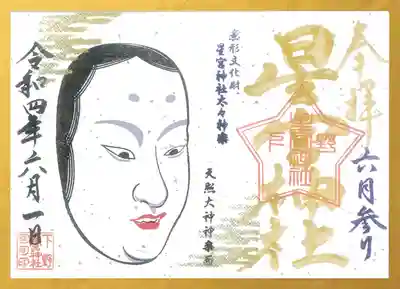 奉拝
六月参り
星宮神社
下野
星宮神社
無形文化財
星宮神社太々神楽
天照大神神楽面
令和四年六月一日
下野
星宮神社